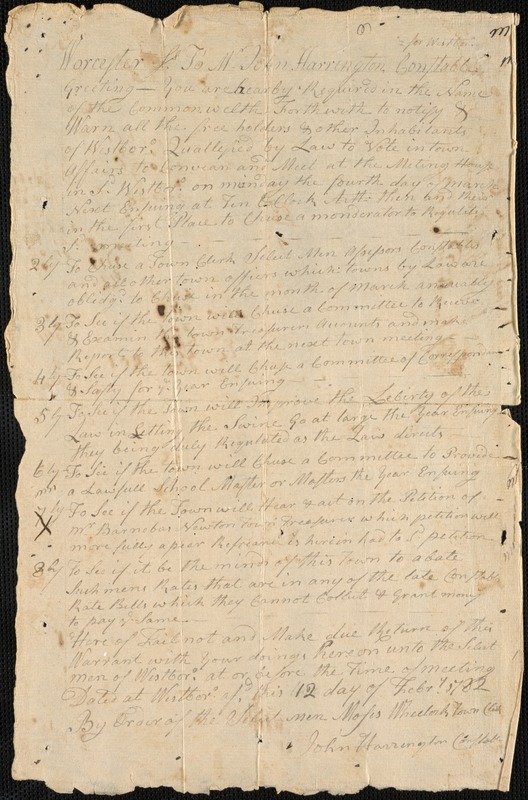 = for Westbo.
Worcester Ss To Mr. John Harrington Constable
Greeting — You are hearby Required in the Name
of the Commonwelth Forthwith to notify &
Warn all the free holders & other Inhabitants
of Westbor. Quallefied by Law to Vote in town
affiers to Convean and Meet at the Meting House
in Sd. Westbor. on munday the fourth day of march
Next Ensuing at Ten OClock then and their
in the first Place to Chuse a monderator to Regulate
Sd. meeting —
2ly To Chuse a Town Clerk Select Men Assessors Constables
and all other town officers which towns by Law are
obledgd. to Chuse in the month of March annually
3ly To See if the town will Chuse a Committee to Receve
& Examin the town treasurers Accounts and make
Report to the town at the next town meeting
4ly To See if the town will Chuse a Committee of Correspon
& Safty for ye. year Ensuing —
5ly To See if the town will Improve the Leberty of the
Law in Letting the Swine Go at large the Year Ensuing
they being duly Regulated as the Law directs
6ly To See if the town will Chuse a Committee to Provide
a Lawfull School Master or Masters the Year Ensuing
7ly To See if the Town will Hear & act on the Petition of
X mr Barnabas Newton town treasurer which petition will
more fully apear Referance is herein had to Sd. petition
8ly To See if it be the mind of this town to abate
Such mens Rates that are in any of the late Constabls
Rate Bills which they Cannot Collect & Grant mony
to pay ye. Same —
Here of Fail not and Make due Return of this
Warrant with Your doings Here on unto the Select
men of Westbor. at or before the Time of meeting
Dated at Westboro. Sd. this 12 day of Febry. 1782
By Order of the Select men Moses Wheelock Town Clerk
John Harrington Constabl